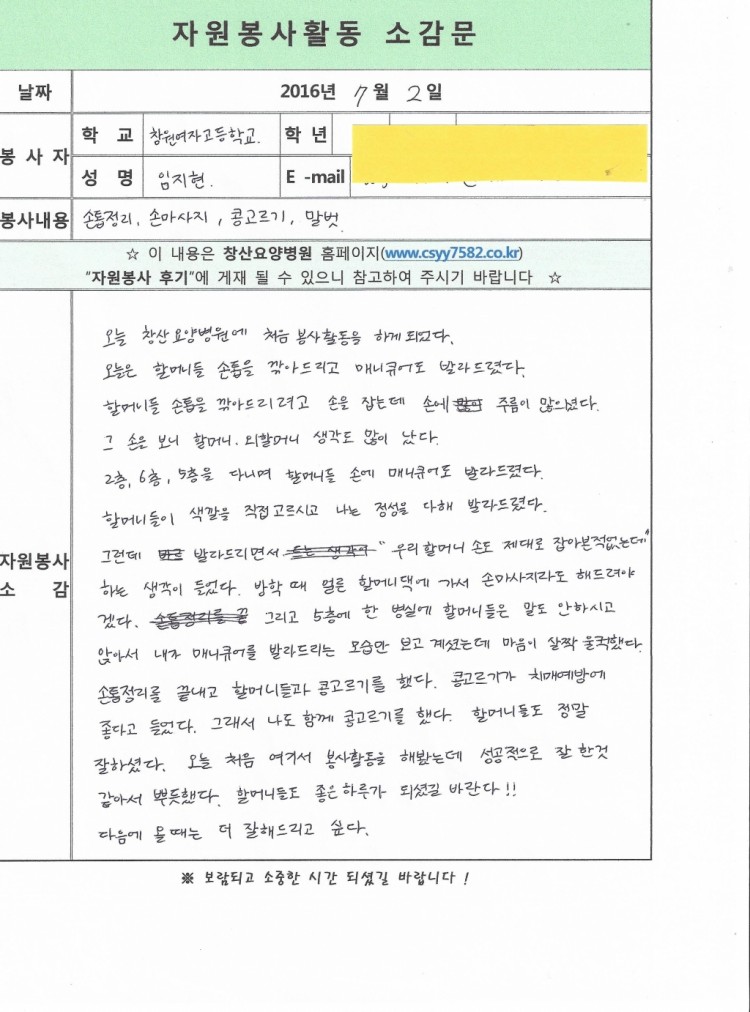 자원봉사활동 소감문
날짜 2016년 7월 2일
봉사자 학 교 창원여자고등학교. 학 년
성 명 임지현. E -mail
봉사내용 손톱정리, 손마사지, 콩고르기, 말벗
☆ 이 내용은 창산요양병원 홈페이지(www.csyy7582.co.kr)
"자원봉사 후기"에 게재 될 수 있으니 참고하여 주시기 바랍니다 ☆
자원봉사 소 감
오늘 창산요양병원에 처음 봉사활동을 하게 되었다.
오늘은 할머니들 손톱을 깎아드리고 매니큐어도 발라드렸다.
할머니들 손톱을 깎아드리려고 손을 잡는데 손에 많이 주름이 많으셨다.
그 손을 보니 할머니, 외할머니 생각도 많이 났다.
2층, 6층, 5층을 다니며 할머니들 손에 매니큐어도 발라드렸다.
할머니들이 색깔을 직접고르시고 나는 정성을 다해 발라드렸다.
그런데 발라드리면서 드는 생각이 "우리할머니 손도 제대로 잡아본적없는데"
하는 생각이 들었다. 방학 때 얼른 할머니댁에 가서 손마사지라도 해드려야
겠다. 손톱정리를 끝 그리고 5층에 한 병실에 할머니들은 말도 안하시고
앉아서 내가 매니큐어를 발라드리는 모습만 보고 계셨는데 마음이 살짝 울컥했다.
손톱정리를 끝내고 할머니들과 콩고르기를 했다. 콩고르기가 치매예방에
좋다고 들었다. 그래서 나도 함께 콩고르기를 했다. 할머니들도 정말
잘하셨다. 오늘 처음 여기서 봉사활동을 해봤는데 성공적으로 잘 한것
같아서 뿌듯했다. 할머니들도 좋은하루가 되셨길 바란다!!
다음에 올때는 더 잘해드리고 싶다.
※ 보람되고 소중한 시간 되셨길 바랍니다 !